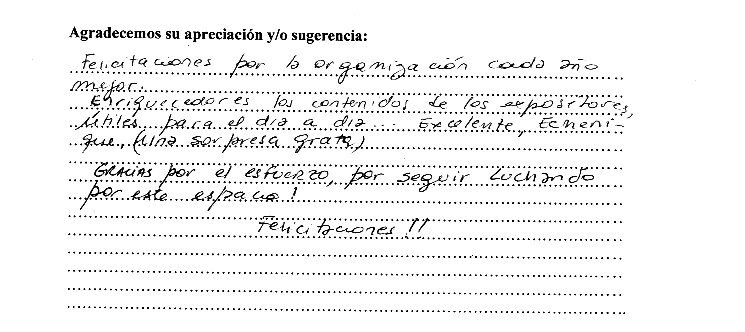 Agradecemos su apreciación y/o sugerencia:
Felicitaciones por la organización cada año
mejor.
Enriquecedores los contenidos de los expositores,
útiles para el dia a dia... Excelente, Echeni-
que, (Una sorpresa grata)
GRACIAS por el esfuerzo, por seguir luchando
por este espacio!
Felicitaciones!!